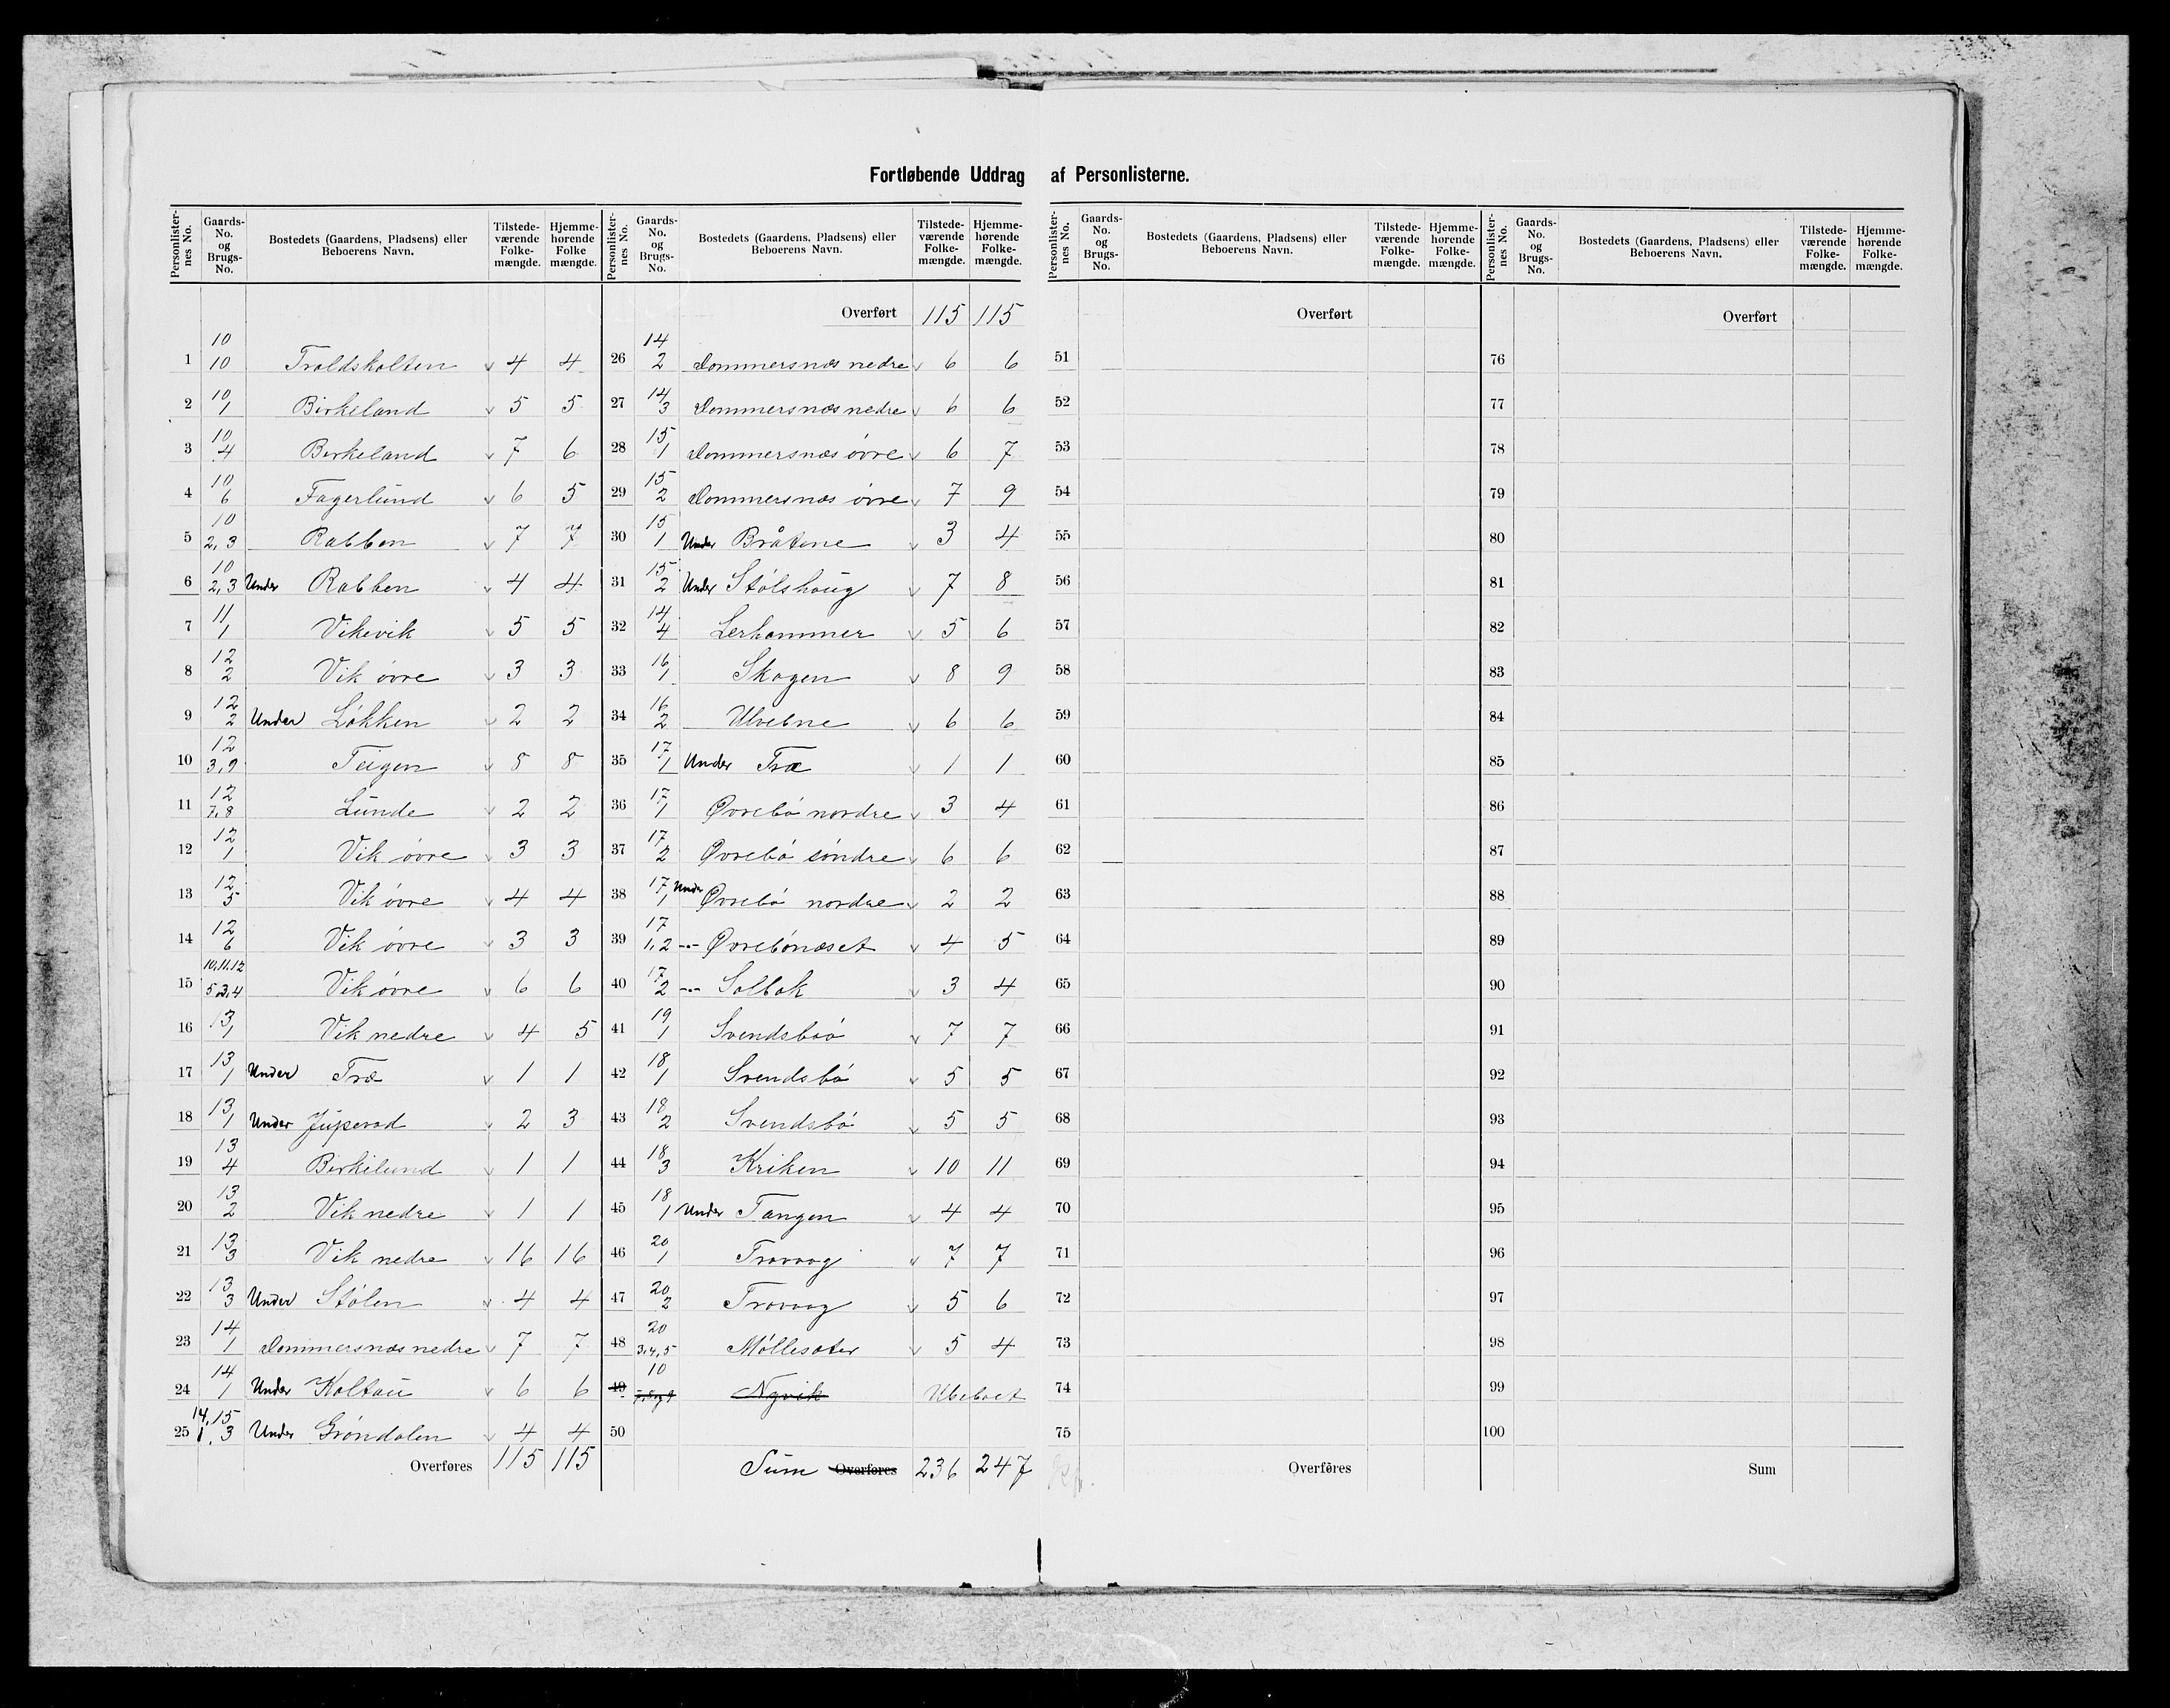 Fortløbende Uddrag af Personlisterne.
Personlister-nes No. | Gaards-No. og Brugs-No. | Bostedets (Gaardens, Pladsens) eller Beboerens Navn. | Tilstede-værende Folke-mængde. | Hjemme-hørende Folke mængde.
1 10 10 Troldskolten v 4 4
2 10 1 Birkeland v 5 5
3 10 4 Birkeland v 7 6
4 10 6 Fagerlund v 6 5
5 10 2,3 Rabben v 7 7
6 10 2,3 Under Rabben v 4 4
7 11 1 Vikevik v 5 5
8 12 2 Vik övre v 3 3
9 12 2 Under Lökken v 2 2
10 12 3,9 Teigen v 8 8
11 12 7,8 Lunde v 2 2
12 12 1 Vik övre v 3 3
13 12 5 Vik övre v 4 4
14 12 6 Vik övre v 3 3
15 10.11.12 5 3,4 Vik övre v 6 6
16 13 1 Vik nedre v 4 5
17 13 1 Under Træ v 1 1
18 13 1 Under v 2 3
19 13 4 Birkilund v 1 1
20 13 2 Vik nedre v 1 1
21 13 3 Vik nedre v 16 16
22 13 3 Under Stölen v 4 4
23 14 1 Dommersnæs nedre v 7 7
24 14 1 Under Koltau v 6 6
25 14,15 1,3 Under Gröndalen v 4 4
Overføres 115 115
Personlister-nes No. | Gaards-No. og Brugs-No. | Bostedets (Gaardens, Pladsens) eller Beboerens Navn. | Tilstede-værende Folke-mængde. | Hjemme-hørende Folke-mængde.
Overført 115 115
26 14 2 Dommersnæs nedre v 6 6
27 14 3 Dommersnæs nedre v 6 6
28 15 1 Dommersnæs övre v 6 7
29 15 2 Dommersnæs övre v 7 9
30 15 1 Under Bråtene v 3 4
31 15 2 Under Stölshaug v 7 8
32 14 4 Lerhammer v 5 6
33 16 1 Skogen v 8 9
34 16 2 Ulvebne v 6 6
35 17 1 Under Træ v 1 1
36 17 1 Øvrebö nordre v 3 4
37 17 2 Øvrebö söndre v 6 6
38 17 1 Under Øvrebö nordre v 2 2
39 17 1,2 -"- Øvrebönæset v 4 5
40 17 2 -"- Solbak v 3 4
41 19 1 Svendsböö v 7 7
42 18 1 Svendsbö v 5 5
43 18 2 Svendsbö v 5 5
44 18 3 Kriken v 10 11
45 18 1 Under Tangen v 4 4
46 20 1 Trovaag v 7 7
47 20 2 Trovaag v 5 6
48 20 3,4,5 Möllesæter v 5 4
49 10 Nyvik Ubeboet
50
Sum Overføres 236 247
Personlister-nes No. | Gaards-No. og Brugs-No. | Bostedets (Gaardens, Pladsens) eller Beboerens Navn. | Tilstede-værende Folke-mængde. | Hjemme-hørende Folke-mængde.
Overført
51
52
53
54
55
56
57
58
59
60
61
62
63
64
65
66
67
68
69
70
71
72
73
74
75
Overføres
Personlister-nes No. | Gaards-No. og Brugs-No. | Bostedets (Gaardens, Pladsens) eller Beboerens Navn. | Tilstede-værende Folke-mængde. | Hjemme-hørende Folke-mængde.
Overført
76
77
78
79
80
81
82
83
84
85
86
87
88
89
90
91
92
93
94
95
96
97
98
99
100
Sum